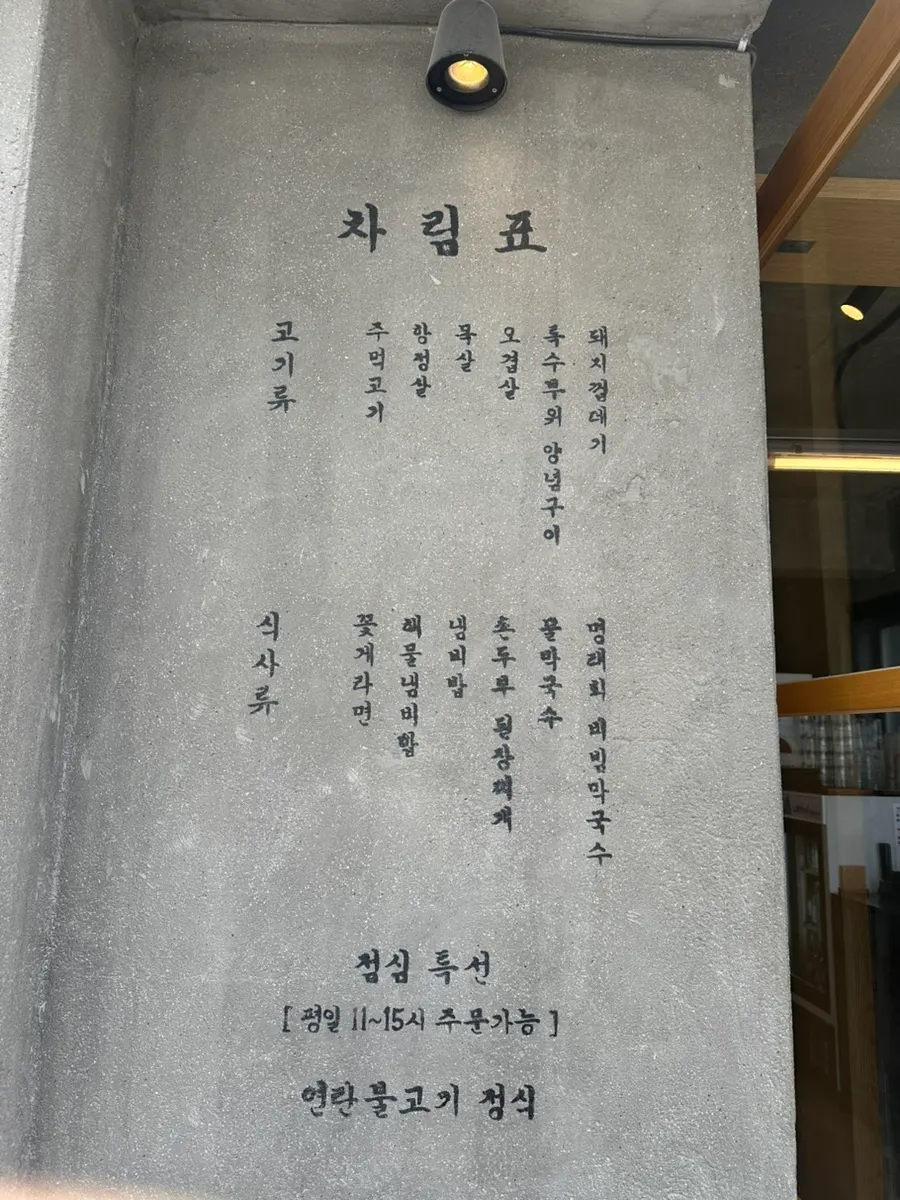 차림표
고기류
주먹고기
항정살
목살
오겹살
특수부위 양념구이
돼지껍데기
식사류
꽃게라면
해물냄비밥
냄비밥
손두부 된장찌개
물막국수
명태회 비빔막국수
점심 특선
[ 평일 11~15시 주문가능 ]
연탄불고기 정식